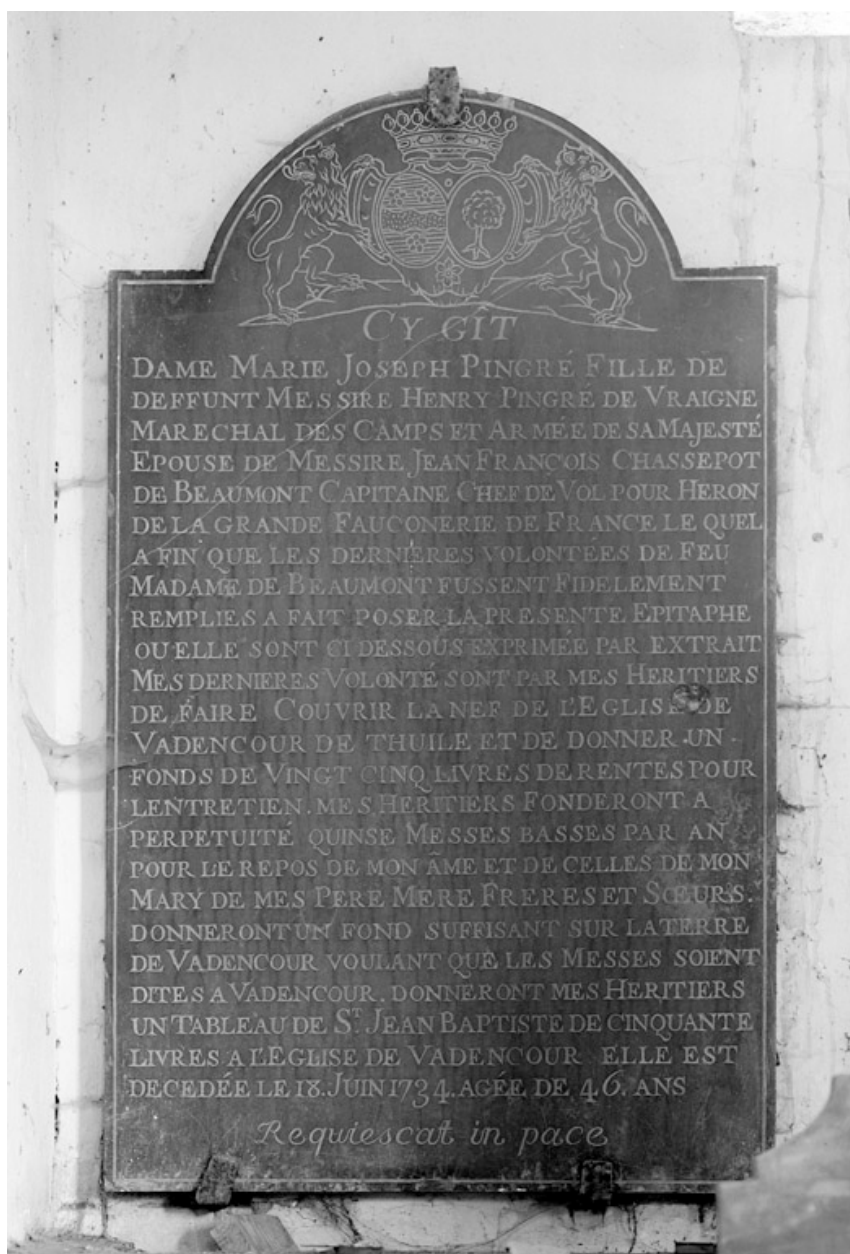 CY GÎT
DAME MARIE JOSEPH PINGRÉ FILLE DE
DEFFUNT MESSIRE HENRY PINGRÉ DE VRAIGNE
MARECHAL DES CAMPS ET ARMÉE DE SA MAJESTÉ
EPOUSE DE MESSIRE JEAN FRANÇOIS CHASSEPOT
DE BEAUMONT CAPITAINE CHEF DE VOL POUR HERON
DE LA GRANDE FAUCONERIE DE FRANCE LE QUEL
A FIN QUE LES DERNIERES VOLONTÉES DE FEU
MADAME DE BEAUMONT FUSSENT FIDELEMENT
REMPLIES A FAIT POSER LA PRESENTE EPITAPHE
OU ELLE SONT CI DESSOUS EXPRIMÉE PAR EXTRAIT
MES DERNIERES VOLONTÉ SONT PAR MES HERITIERS
DE FAIRE COUVRIR LA NEF DE L'EGLISE DE
VADENCOUR DE THUILE ET DE DONNER UN
FONDS DE VINGT CINQ LIVRES DE RENTES POUR
LENTRETIEN. MES HERITIERS FONDERONT A
PERPETUITÉ QUINSE MESSES BASSES PAR AN
POUR LE REPOS DE MON AME ET DE CELLES DE MON
MARY DE MES PERE MERE FRERES ET SŒURS.
DONNERONT UN FOND SUFFISANT SUR LA TERRE
DE VADENCOUR VOULANT QUE LES MESSES SOIENT
DITES A VADENCOUR. DONNERONT MES HERITIERS
UN TABLEAU DE ST. JEAN BAPTISTE DE CINQUANTE
LIVRES A L'EGLISE DE VADENCOUR ELLE EST
DECEDÉE LE 18. JUIN 1734. AGÉE DE 46. ANS
Requiescat in pace